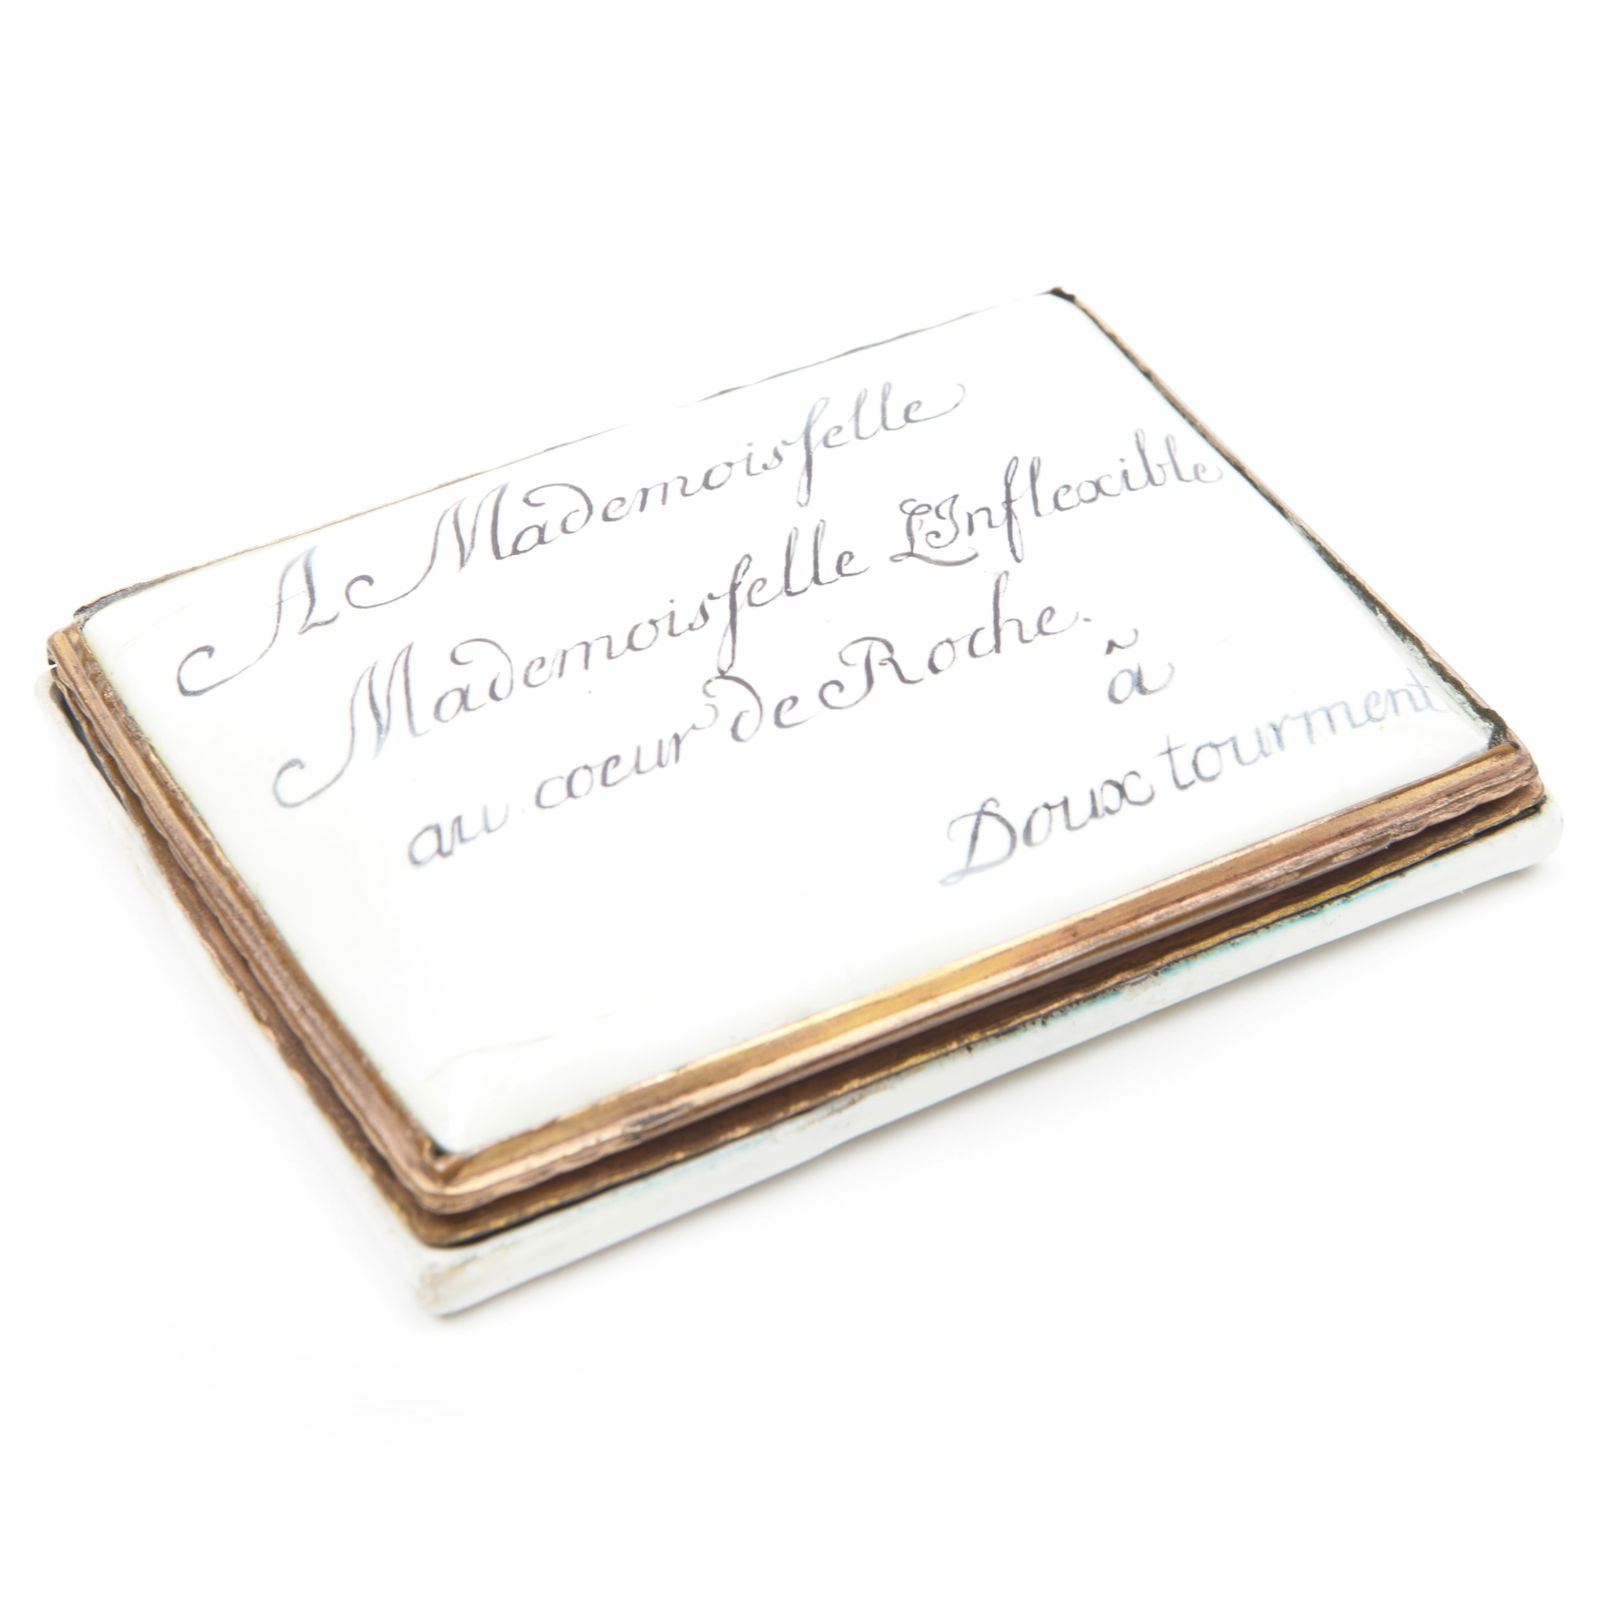 A Mademoisſelle
Mademoisſelle L'Inflexible
au coeur de Roche.
ã
Doux tourment